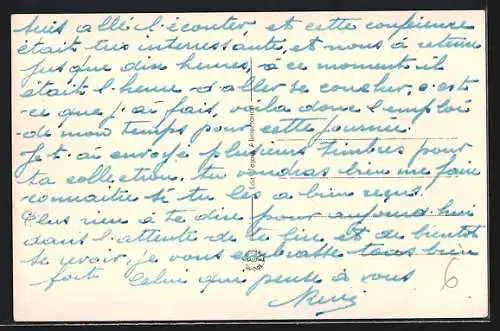 suis allé l'écouter, et cette conférence
était tres interressante, et nous à retenu
jusque dix heures, à ce moment il
était l'heure d'aller se coucher, c'est
ce que j'ai fais, voila donc l'emploi
de mon temps pour cette journée.
Je t'ai envoyé plusieurs timbres pour
ta collection, tu voudras bien me faire
connaitre si tu les a bien reçus.
Plus rien à te dire pour aujourd'hui
dans l'attente de te lire et de bientot
te revoir, je vous embrasse tous bien
fort. Celui qui pense à vous
6